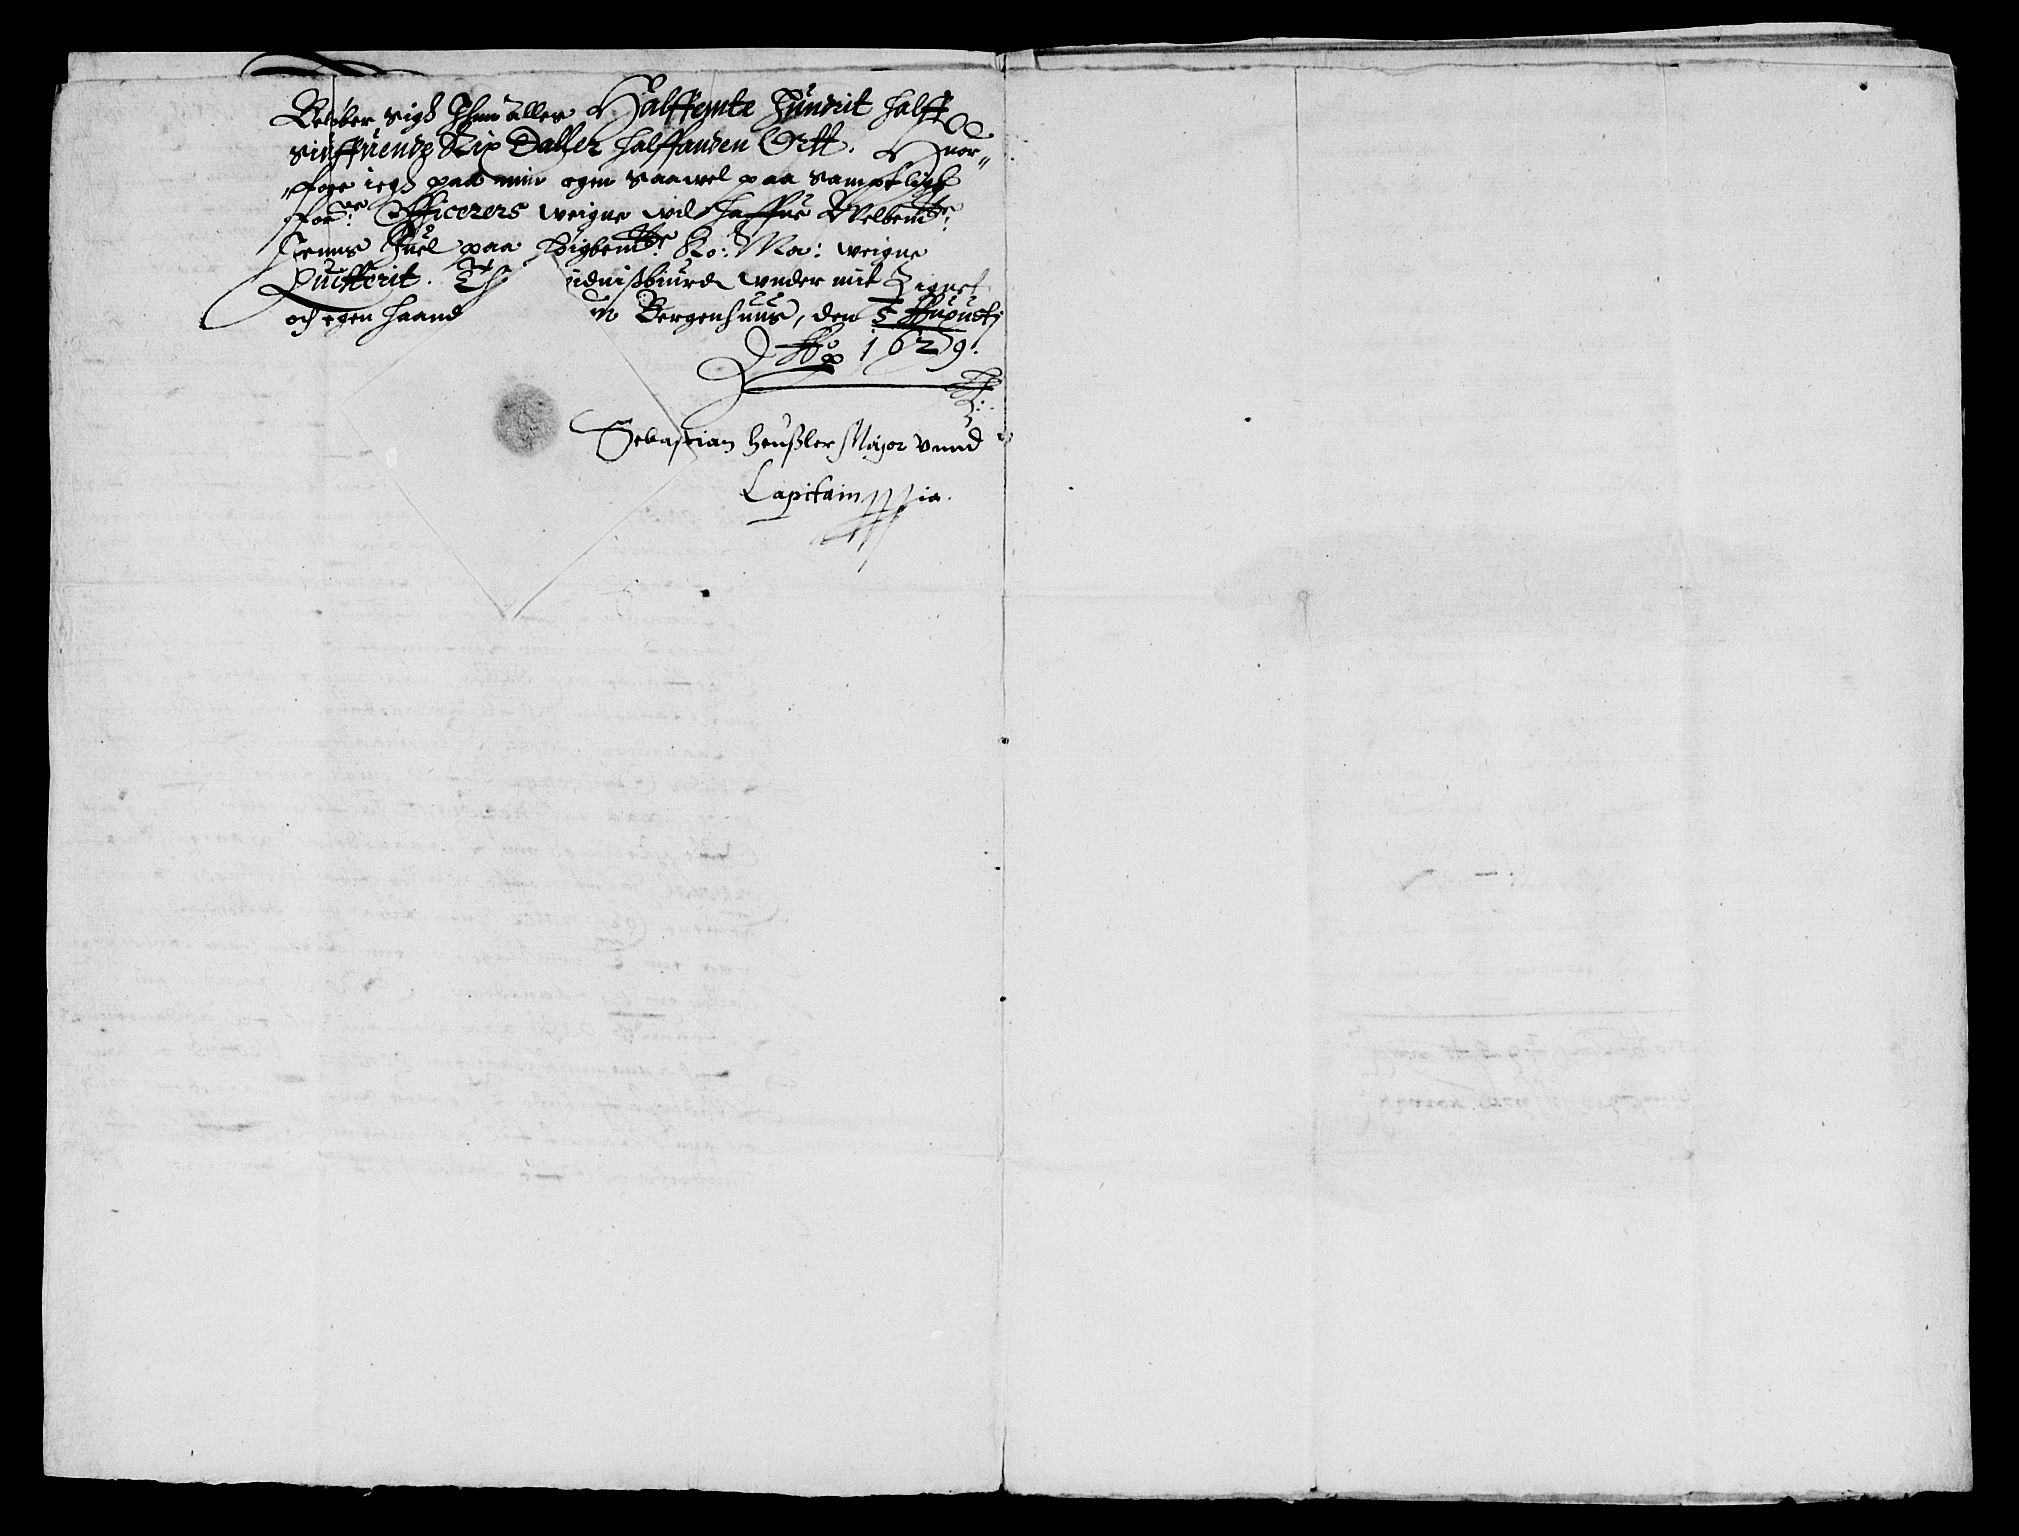 Beløber sigh Ihnn alles Halffemte Hundrit halff
siuffuende Rix Daller halffanden Ortt. Huor-
fore iegh paa min egen saauel paa samptlige
for:ne Officerers weigne wil haffue Welbem:te
Jenns Juel paa høigbem:te Ko: Ma: weigne
Quitterit. Til       uidnisbiurd wnder mit Zignet
och egen haand      Bergenhuus, den 5 Augustj
Ao 1629.
Sebastian Heußler Major vnnd
Capitain